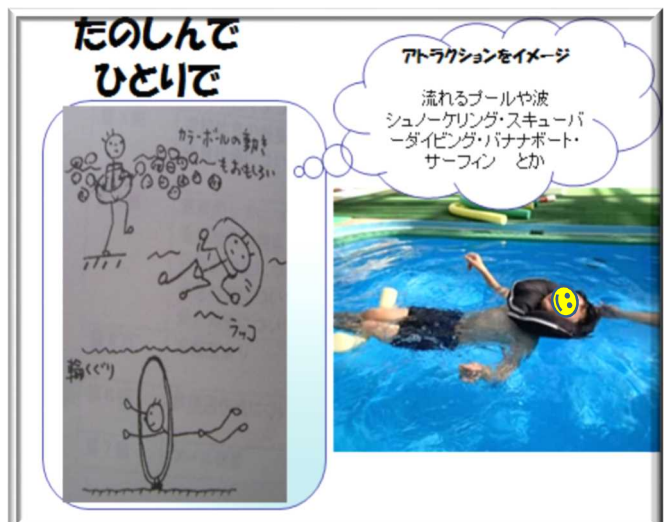 たのしんで
ひとりで
アトラクションをイメージ
流れるプールや波
シュノーケリング・スキューバ
ーダイビング・バナナボート・
サーフィン　とか
カラーボールの動き
もおもしろい
ラッコ
輪くぐり